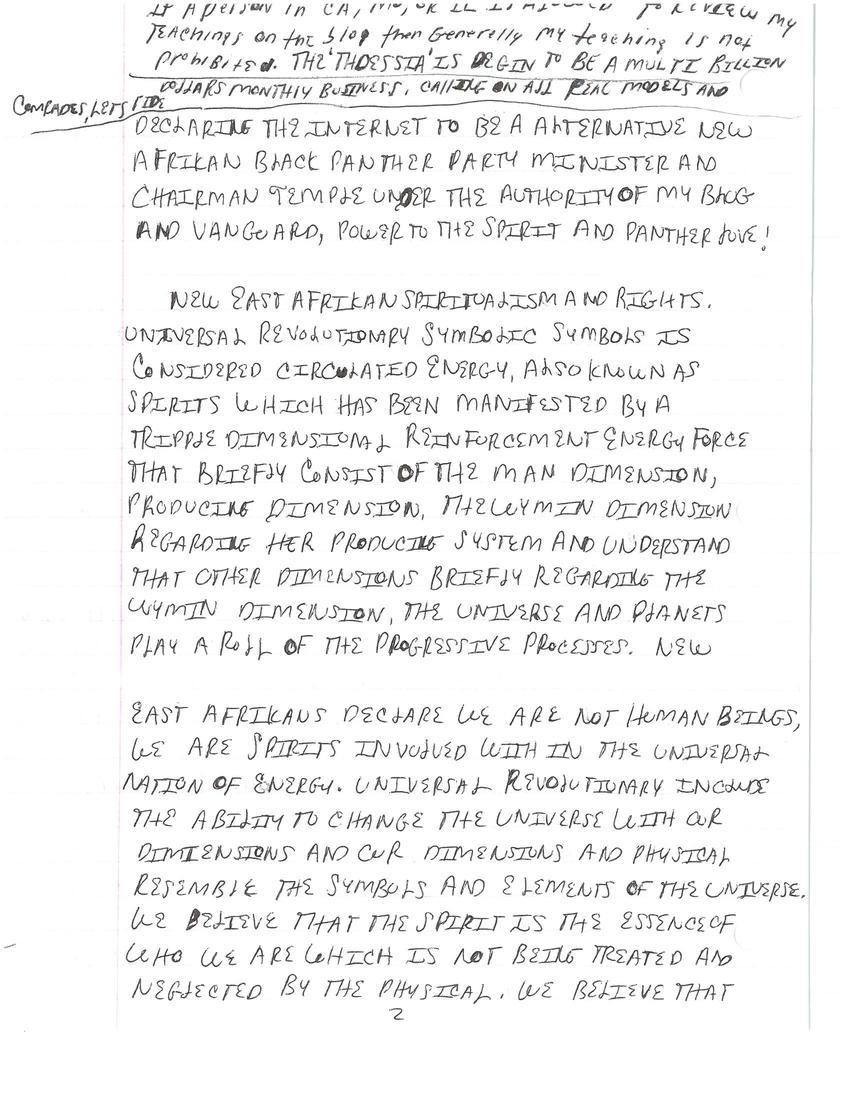 If A person in CA, MO, OR IL IS Allowed To REVIEW my
TEAchings on the blog then Generelly my teaching is not
prohibited. THE 'THOESSIA' IS BEGIN TO BE A MULTI BILLION
DOLLARS MONTHLY BUSINESS, CALLING ON ALL REAL MODELS AND
COMRADES, LETS RIDE
DECLARING THE INTERNET TO BE A ALTERNATIVE NEW
AFRIKAN BLACK PANTHER PARTY MINISTER AND
CHAIRMAN TEMPLE UNDER THE AUTHORITY OF MY BLOG
AND VANGUARD, POWER TO THE SPIRIT AND PANTHER LOVE!
NEW EAST AFRIKAN SPIRITUALISM AND RIGHTS.
UNIVERSAL REVOLUTIONARY SYMBOLIC SYMBOLS IS
CONSIDERED CIRCULATED ENERGY, ALSO KNOWN AS
SPIRITS WHICH HAS BEEN MANIFESTED BY A
TRIPPLE DIMENSIONAL REINFORCEMENT ENERGY FORCE
THAT BRIEFLY CONSIST OF THE MAN DIMENSION,
PRODUCING DIMENSION, THE WYMIN DIMENSION
REGARDING HER PRODUCING SYSTEM AND UNDERSTAND
THAT OTHER DIMENSIONS BRIEFLY REGARDING THE
WYMIN DIMENSION, THE UNIVERSE AND PLANETS
PLAY A ROLL OF THE PROGRESSIVE PROCESSES. NEW
EAST AFRIKANS DECLARE WE ARE NOT HUMAN BEINGS,
WE ARE SPIRITS INVOLVED WITH IN THE UNIVERSAL
NATION OF ENERGY. UNIVERSAL REVOLUTIONARY INCLUDE
THE ABILITY TO CHANGE THE UNIVERSE WITH OUR
DIMIENSIONS AND OUR DIMENSIONS AND PHYSICAL
RESEMBLE THE SYMBOLS AND ELEMENTS OF THE UNIVERSE.
WE BELIEVE THAT THE SPIRIT IS THE ESSENCE OF
WHO WE ARE WHICH IS NOT BEING TREATED AND
NEGLECTED BY THE PHYSICAL. WE BELIEVE THAT
2